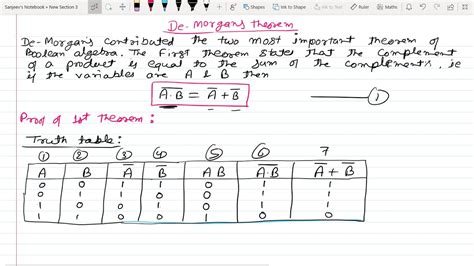 Sanjeev's Notebook • New Section 3
Ink to Shape
Ink to
De-Morgan's theorem
De-Morgan's contributed the two most important theorem of
Boolean algebra. The First theorem states that the complement
of a product is equal to the sum of the complements, ie
if the variables are A & B then
A̅·̅B̅ = A̅ + B̅ 1
Proof of 1st theorem :
Truth table:
1 2 3 4 5 6 7
A B A̅ B̅ AB A̅·̅B̅ A̅ + B̅
0 0 1 1 0 1 1
0 1 1 0 0 1 1
1 0 0 1 0 1 1
1 1 0 0 1 0 0